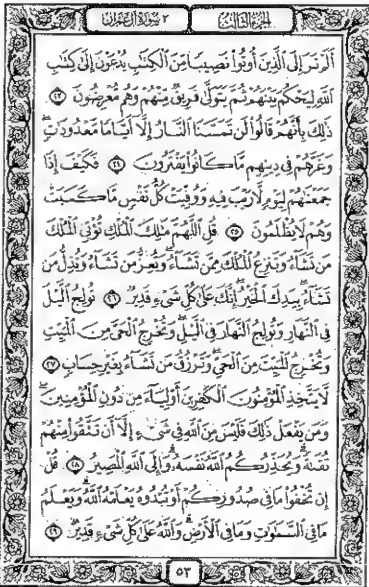 الجزء الثالث
٣ سورة آل عمران
أَلَمْ تَرَ إِلَى الَّذِينَ أُوتُوا نَصِيبًا مِّنَ الْكِتَٰبِ يُدْعَوْنَ إِلَىٰ كِتَٰبِ
اللَّهِ لِيَحْكُمَ بَيْنَهُمْ ثُمَّ يَتَوَلَّىٰ فَرِيقٌ مِّنْهُمْ وَهُم مُّعْرِضُونَ ٢٣
ذَٰلِكَ بِأَنَّهُمْ قَالُوا لَن تَمَسَّنَا النَّارُ إِلَّا أَيَّامًا مَّعْدُودَاتٍ
وَغَرَّهُمْ فِي دِينِهِم مَّا كَانُوا يَفْتَرُونَ ٢٤ فَكَيْفَ إِذَا
جَمَعْنَٰهُمْ لِيَوْمٍ لَّا رَيْبَ فِيهِ وَوُفِّيَتْ كُلُّ نَفْسٍ مَّا كَسَبَتْ
وَهُمْ لَا يُظْلَمُونَ ٢٥ قُلِ اللَّهُمَّ مَٰلِكَ الْمُلْكِ تُؤْتِي الْمُلْكَ
مَن تَشَاءُ وَتَنزِعُ الْمُلْكَ مِمَّن تَشَاءُ وَتُعِزُّ مَن تَشَاءُ وَتُذِلُّ مَن
تَشَاءُ بِيَدِكَ الْخَيْرُ إِنَّكَ عَلَىٰ كُلِّ شَيْءٍ قَدِيرٌ ٢٦ تُولِجُ الَّيْلَ
فِي النَّهَارِ وَتُولِجُ النَّهَارَ فِي الَّيْلِ وَتُخْرِجُ الْحَيَّ مِنَ الْمَيِّتِ
وَتُخْرِجُ الْمَيِّتَ مِنَ الْحَيِّ وَتَرْزُقُ مَن تَشَاءُ بِغَيْرِ حِسَابٍ ٢٧
لَّا يَتَّخِذِ الْمُؤْمِنُونَ الْكَٰفِرِينَ أَوْلِيَاءَ مِن دُونِ الْمُؤْمِنِينَ
وَمَن يَفْعَلْ ذَٰلِكَ فَلَيْسَ مِنَ اللَّهِ فِي شَيْءٍ إِلَّا أَن تَتَّقُوا مِنْهُمْ
تُقَىٰةً وَيُحَذِّرُكُمُ اللَّهُ نَفْسَهُ وَإِلَى اللَّهِ الْمَصِيرُ ٢٨ قُلْ
إِن تُخْفُوا مَا فِي صُدُورِكُمْ أَوْ تُبْدُوهُ يَعْلَمْهُ اللَّهُ وَيَعْلَمُ
مَا فِي السَّمَٰوَٰتِ وَمَا فِي الْأَرْضِ وَاللَّهُ عَلَىٰ كُلِّ شَيْءٍ قَدِيرٌ ٢٩
٥٣